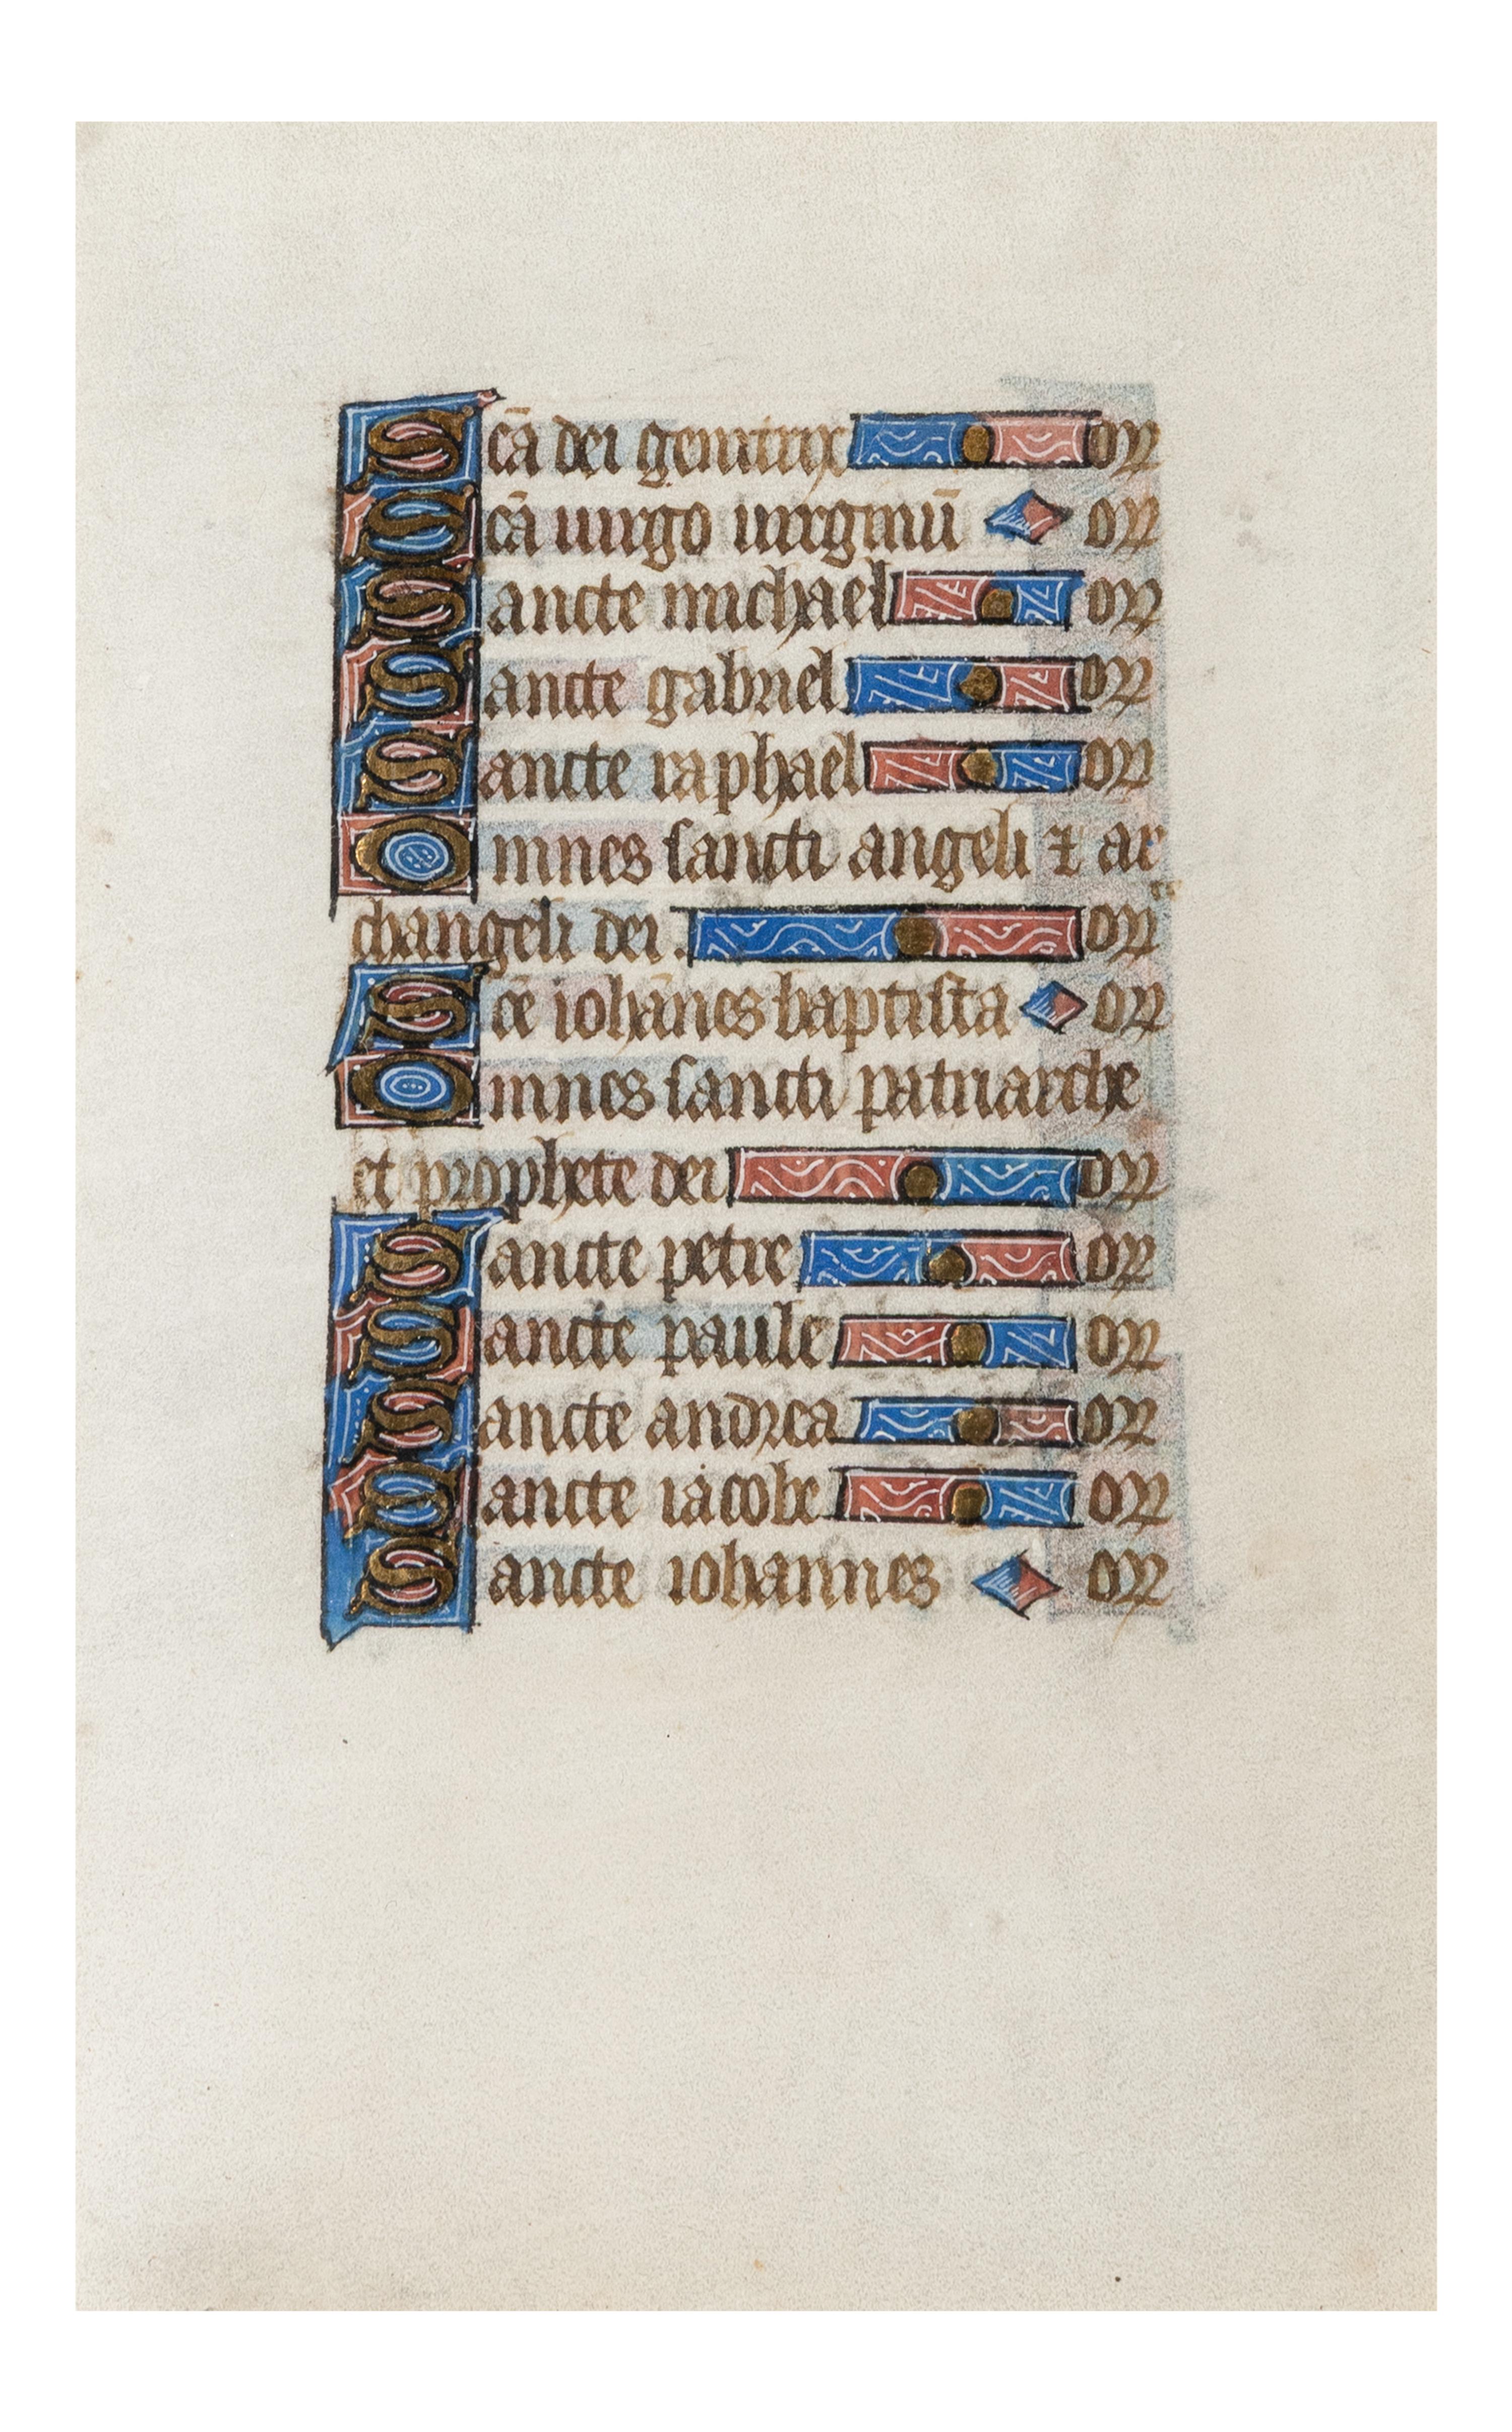 Scā dei genitrix oꝝ
Scā uirgo uirginū oꝝ
Sancte michael oꝝ
Sancte gabriel oꝝ
Sancte raphael oꝝ
Omnes sancti angeli ⁊ ar
changeli dei. oꝝ
Scē iohānes baptista oꝝ
Omnes sancti patriarche
et prophete dei oꝝ
Sancte petre oꝝ
Sancte paule oꝝ
Sancte andrea oꝝ
Sancte iacobe oꝝ
Sancte iohannes oꝝ